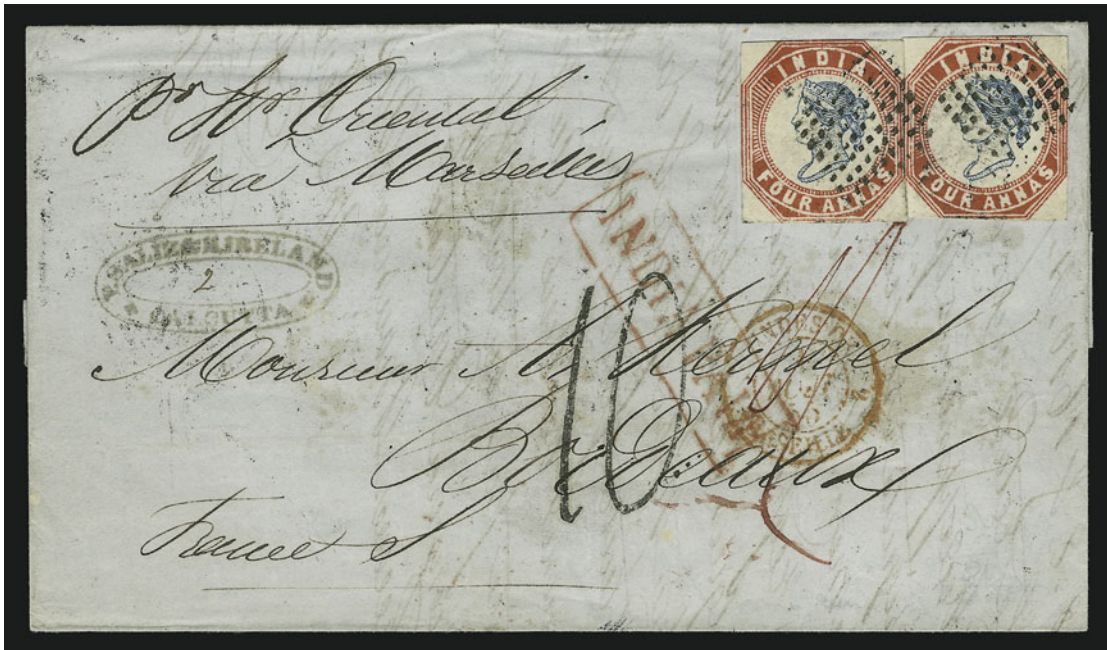 INDIA
FOUR ANNAS
INDIA
FOUR ANNAS
pr Str Oriental
via Marseilles
INDIA
& IRELAND
2
CALCUTTA
10
Monsieur A.
Bordeaux
France